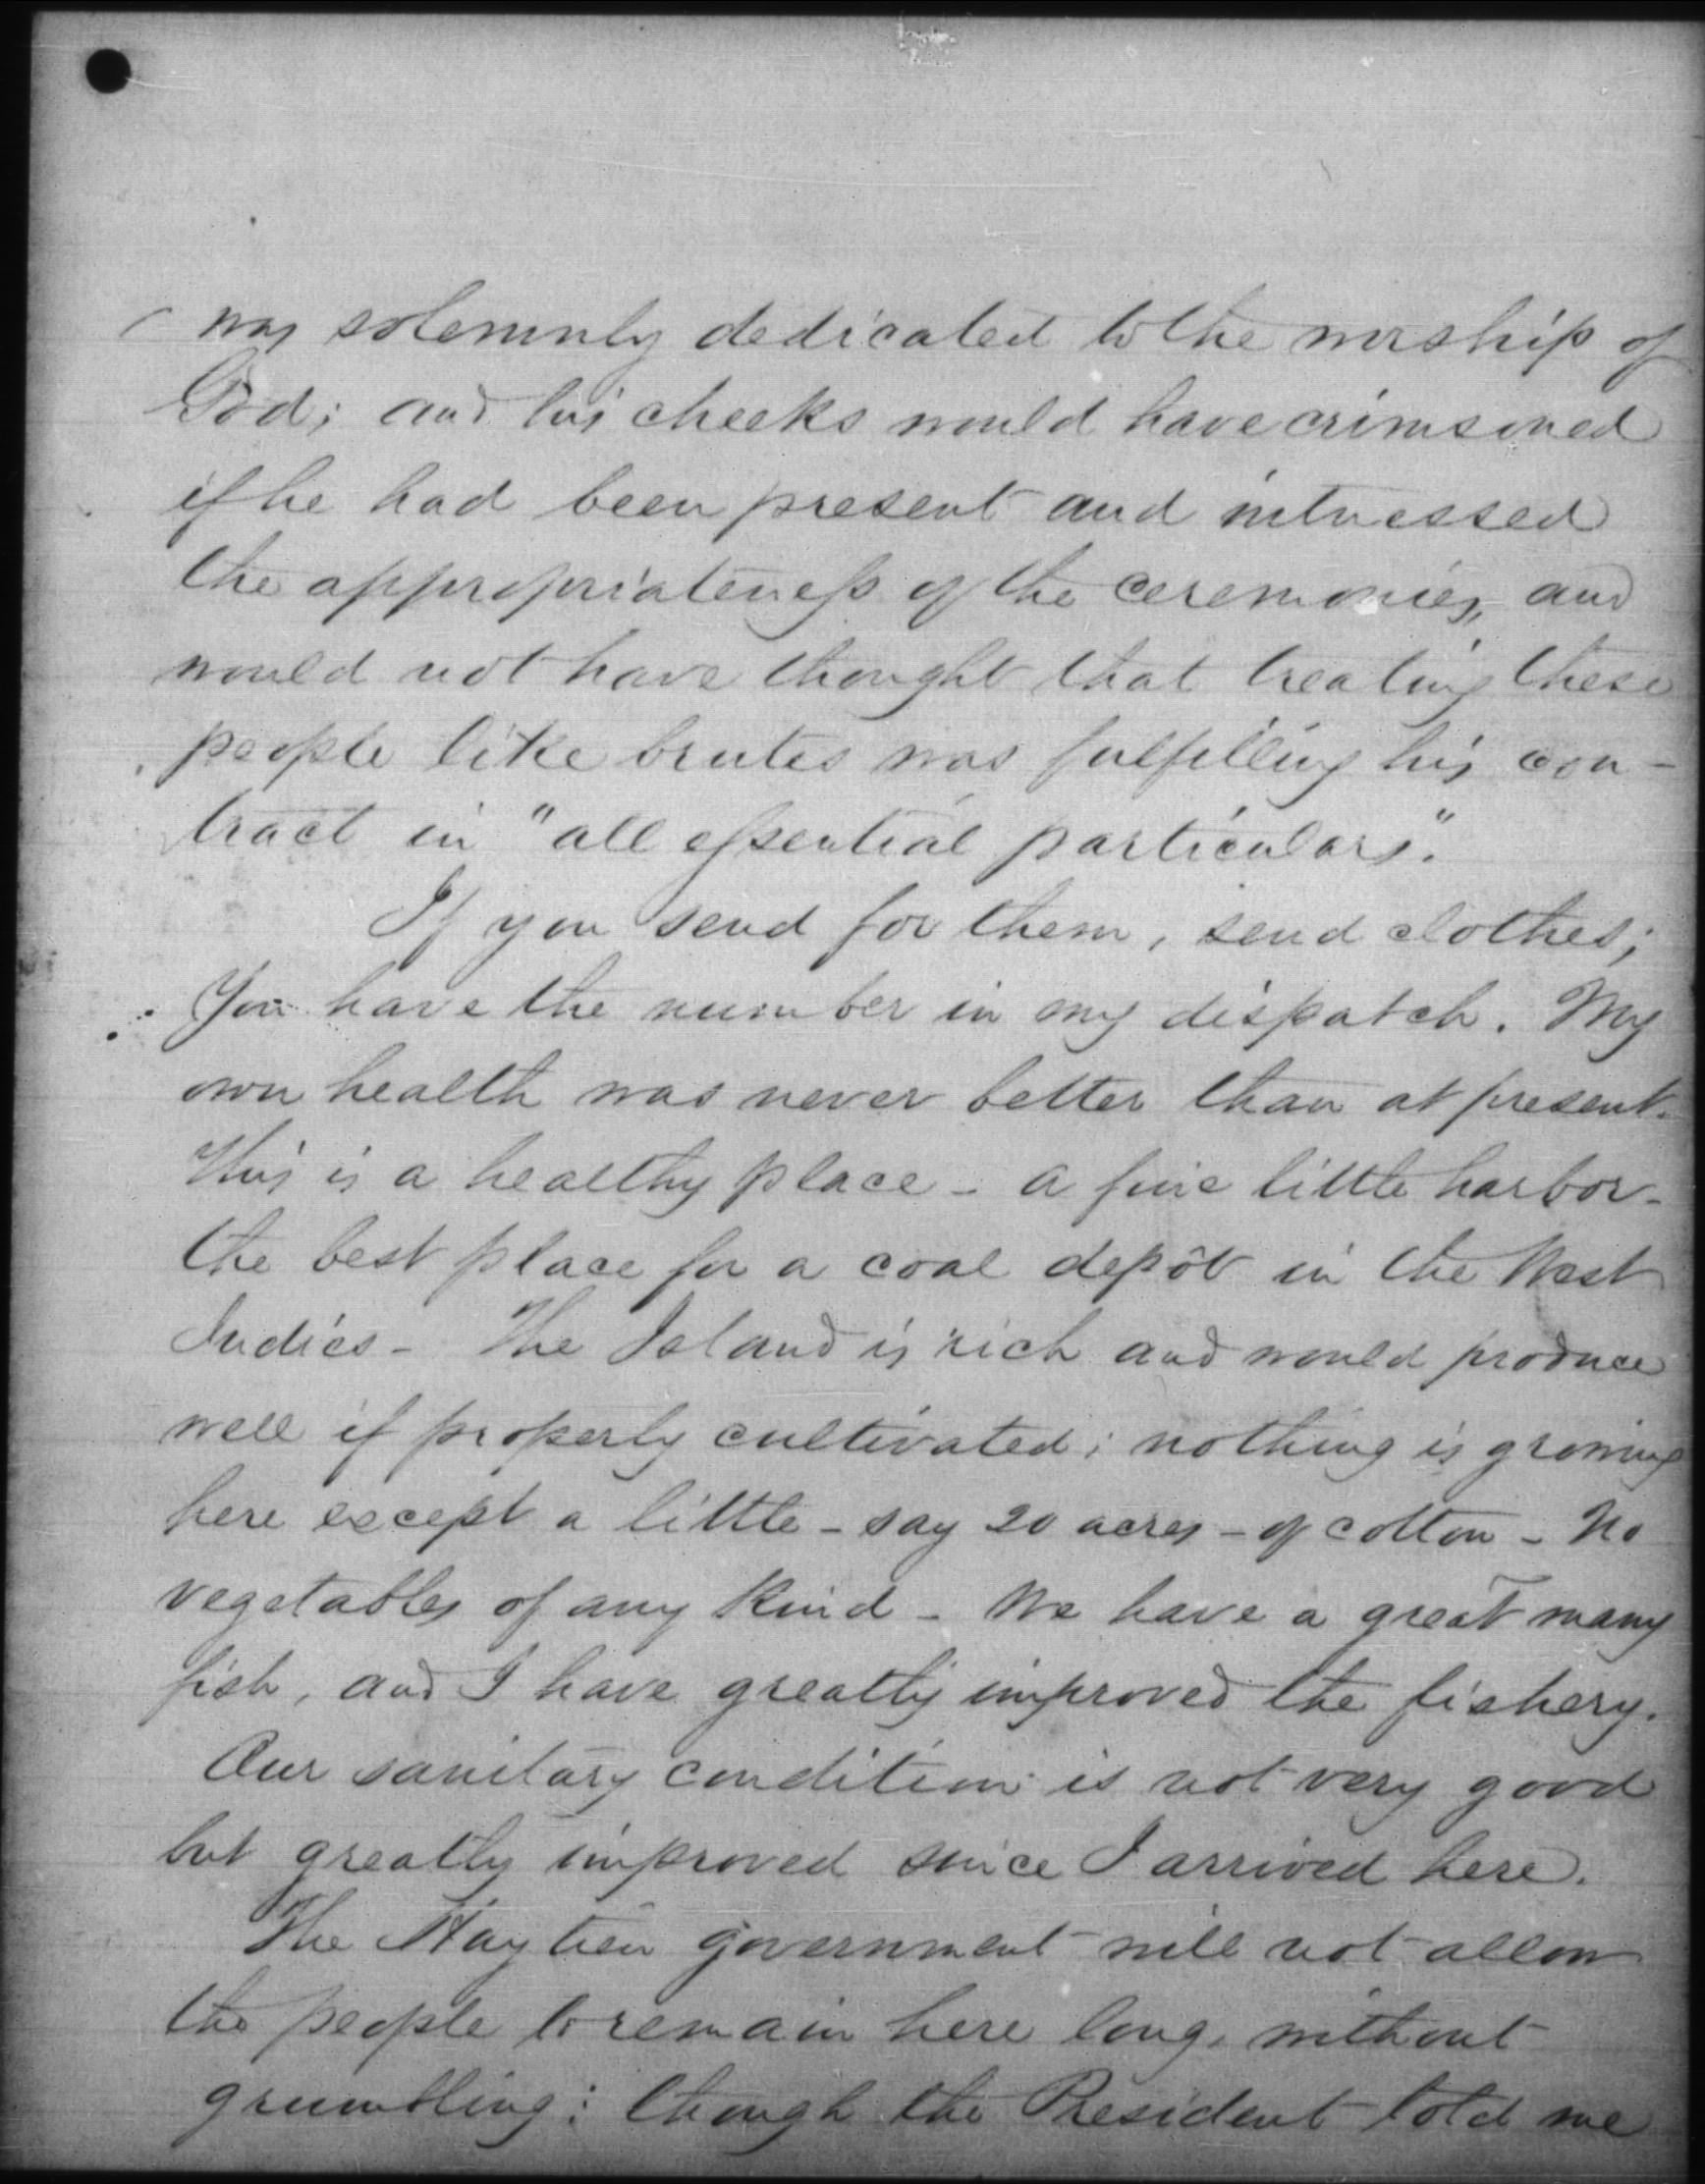 was solemnly dedicated to the worship of
God; and his cheeks would have crimsoned
if he had been present and witnessed
the appropriateness of the ceremonies, and
would not have thought that treating these
people like brutes was fulfilling his con-
tract in "all essential particulars".
If you send for them, send clothes;
You have the number in my dispatch. My
own health was never better than at present.
This is a healthy place - a fine little harbor -
the best place for a coal depôt in the West
Indies - The Island is rich and would produce
well if properly cultivated; nothing is growing
here except a little - say 20 acres - of cotton - No
vegetables of any kind - We have a great many
fish, and I have greatly improved the fishery.
Our sanitary condition is not very good
but greatly improved since I arrived here.
The Haytien government will not allow
the people to remain here long, without
grumbling; though the President told me